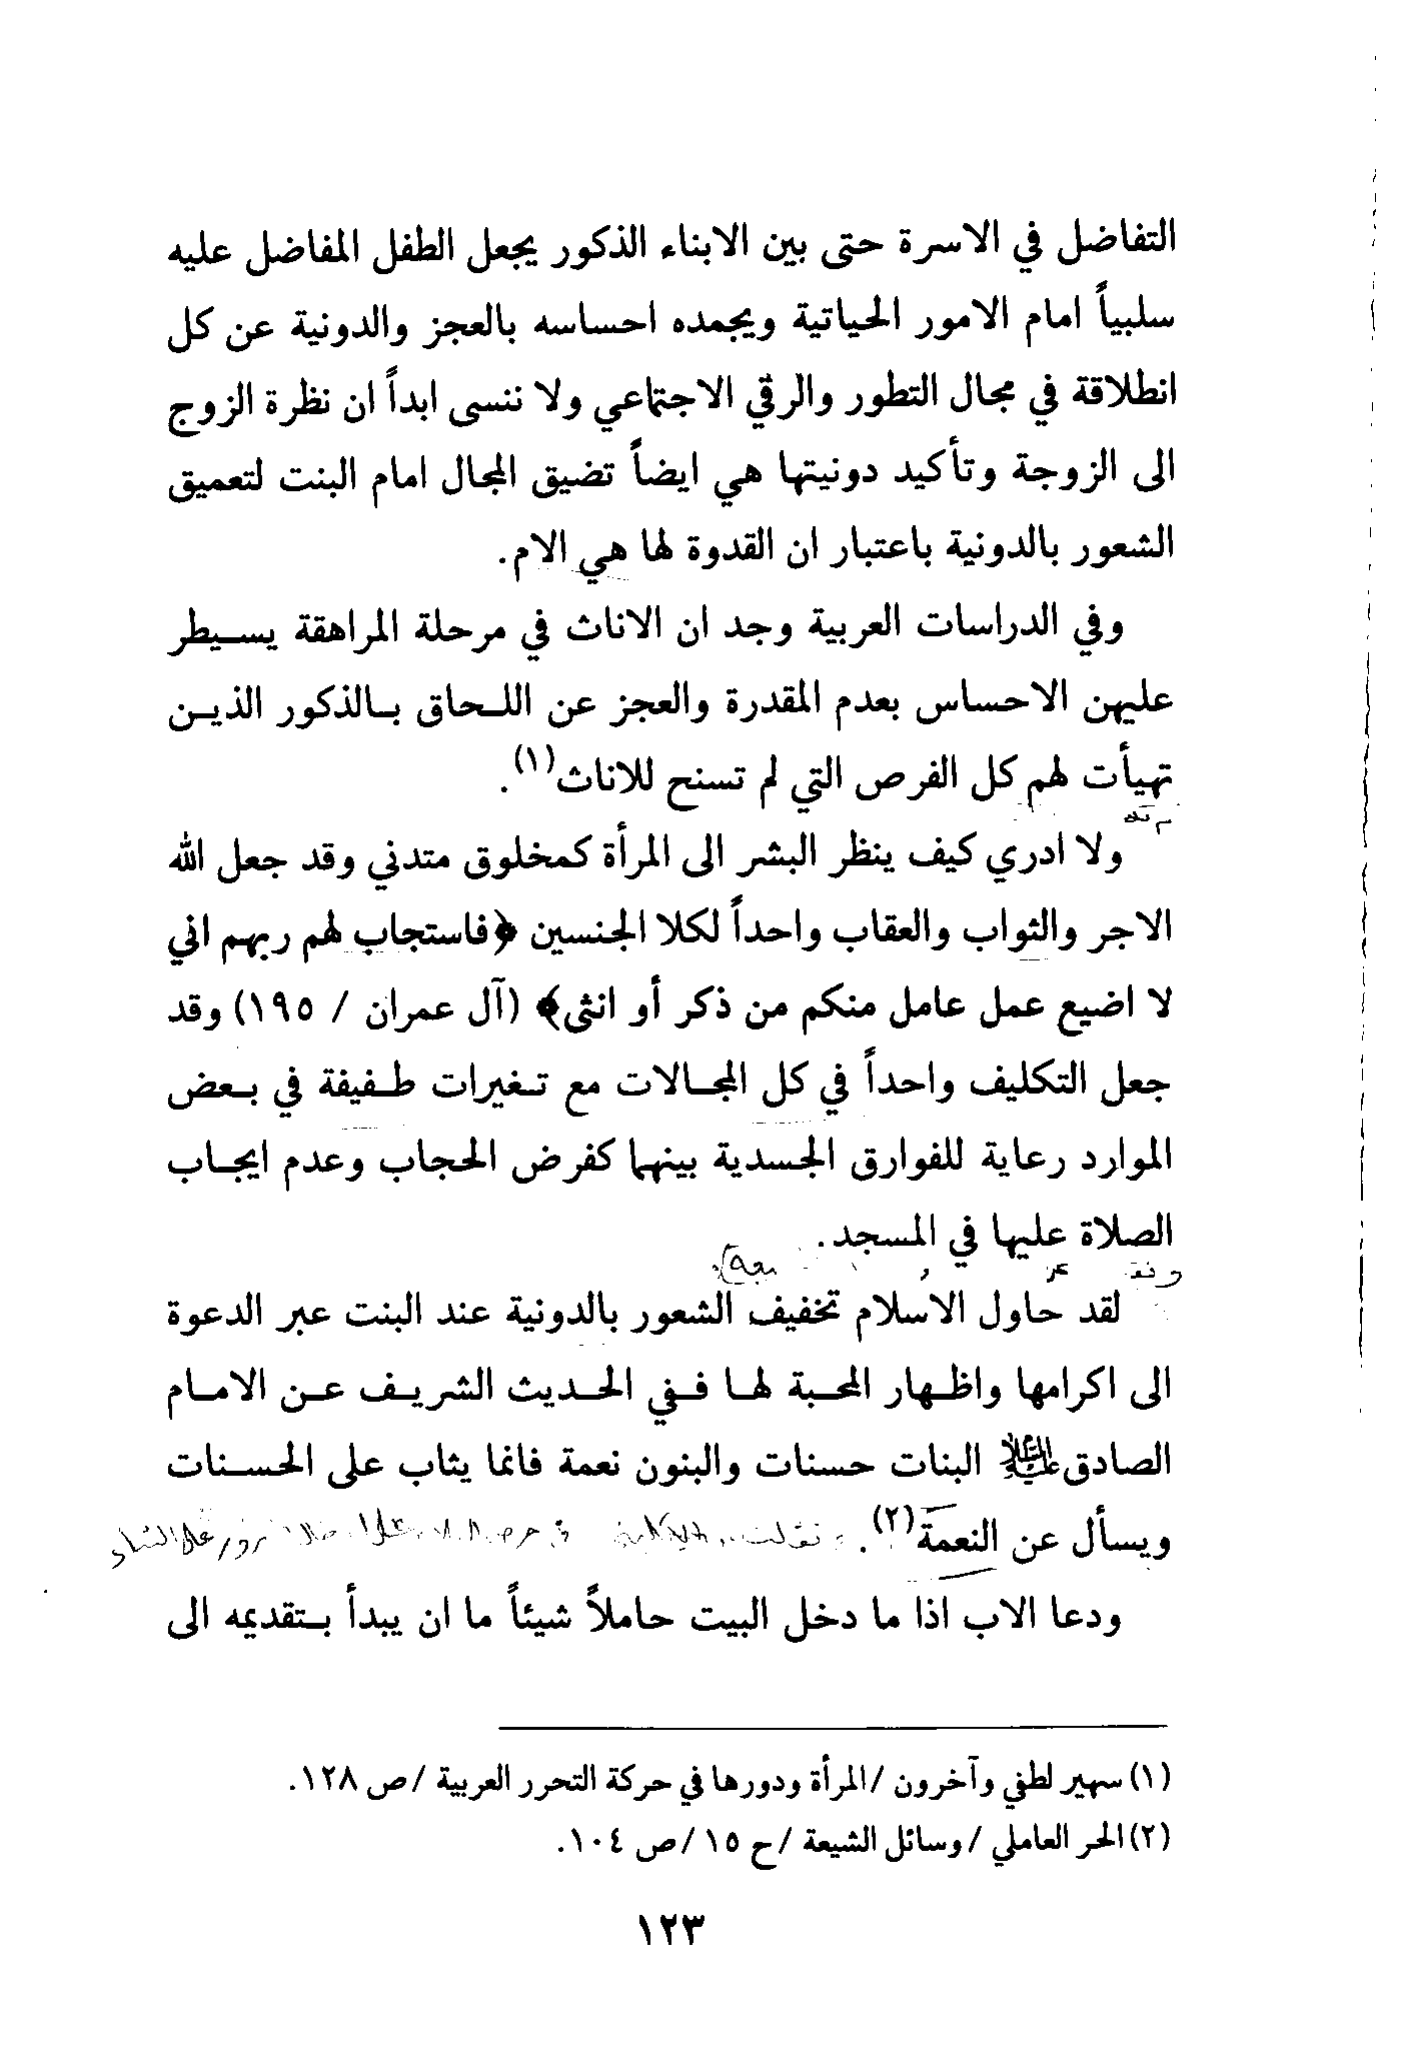 التفاضل في الاسرة حتى بين الابناء الذكور يجعل الطفل المفاضل عليه
سلبياً امام الامور الحياتية ويجمده احساسه بالعجز والدونية عن كل
انطلاقة في مجال التطور والرقي الاجتماعي ولا ننسى ابداً ان نظرة الزوج
الى الزوجة وتأكيد دونيتها هي ايضاً تضيق المجال امام البنت لتعميق
الشعور بالدونية باعتبار ان القدوة لها هي الام.
وفي الدراسات العربية وجد ان الاناث في مرحلة المراهقة يسيطر
عليهن الاحساس بعدم المقدرة والعجز عن اللحاق بالذكور الذين
تهيأت لهم كل الفرص التي لم تسنح للاناث(١).
ولا ادري كيف ينظر البشر الى المرأة كمخلوق متدني وقد جعل الله
الاجر والثواب والعقاب واحداً لكلا الجنسين ﴿فاستجاب لهم ربهم اني
لا اضيع عمل عامل منكم من ذكر أو انثى﴾ (آل عمران / ١٩٥) وقد
جعل التكليف واحداً في كل المجالات مع تغيرات طفيفة في بعض
الموارد رعاية للفوارق الجسدية بينهما كفرض الحجاب وعدم ايجاب
الصلاة عليها في المسجد.
لقد حاول الاسلام تخفيف الشعور بالدونية عند البنت عبر الدعوة
الى اكرامها واظهار المحبة لها ففي الحديث الشريف عن الامام
الصادق عليه السلام البنات حسنات والبنون نعمة فانما يثاب على الحسنات
ويسأل عن النعمة(٢).
ودعا الاب اذا ما دخل البيت حاملاً شيئاً ما ان يبدأ بتقديمه الى
(١) سهير لطفي وآخرون /المرأة ودورها في حركة التحرر العربية /ص ١٢٨.
(٢) الحر العاملي /وسائل الشيعة /ح ١٥ /ص ١٠٤.
١٢٣